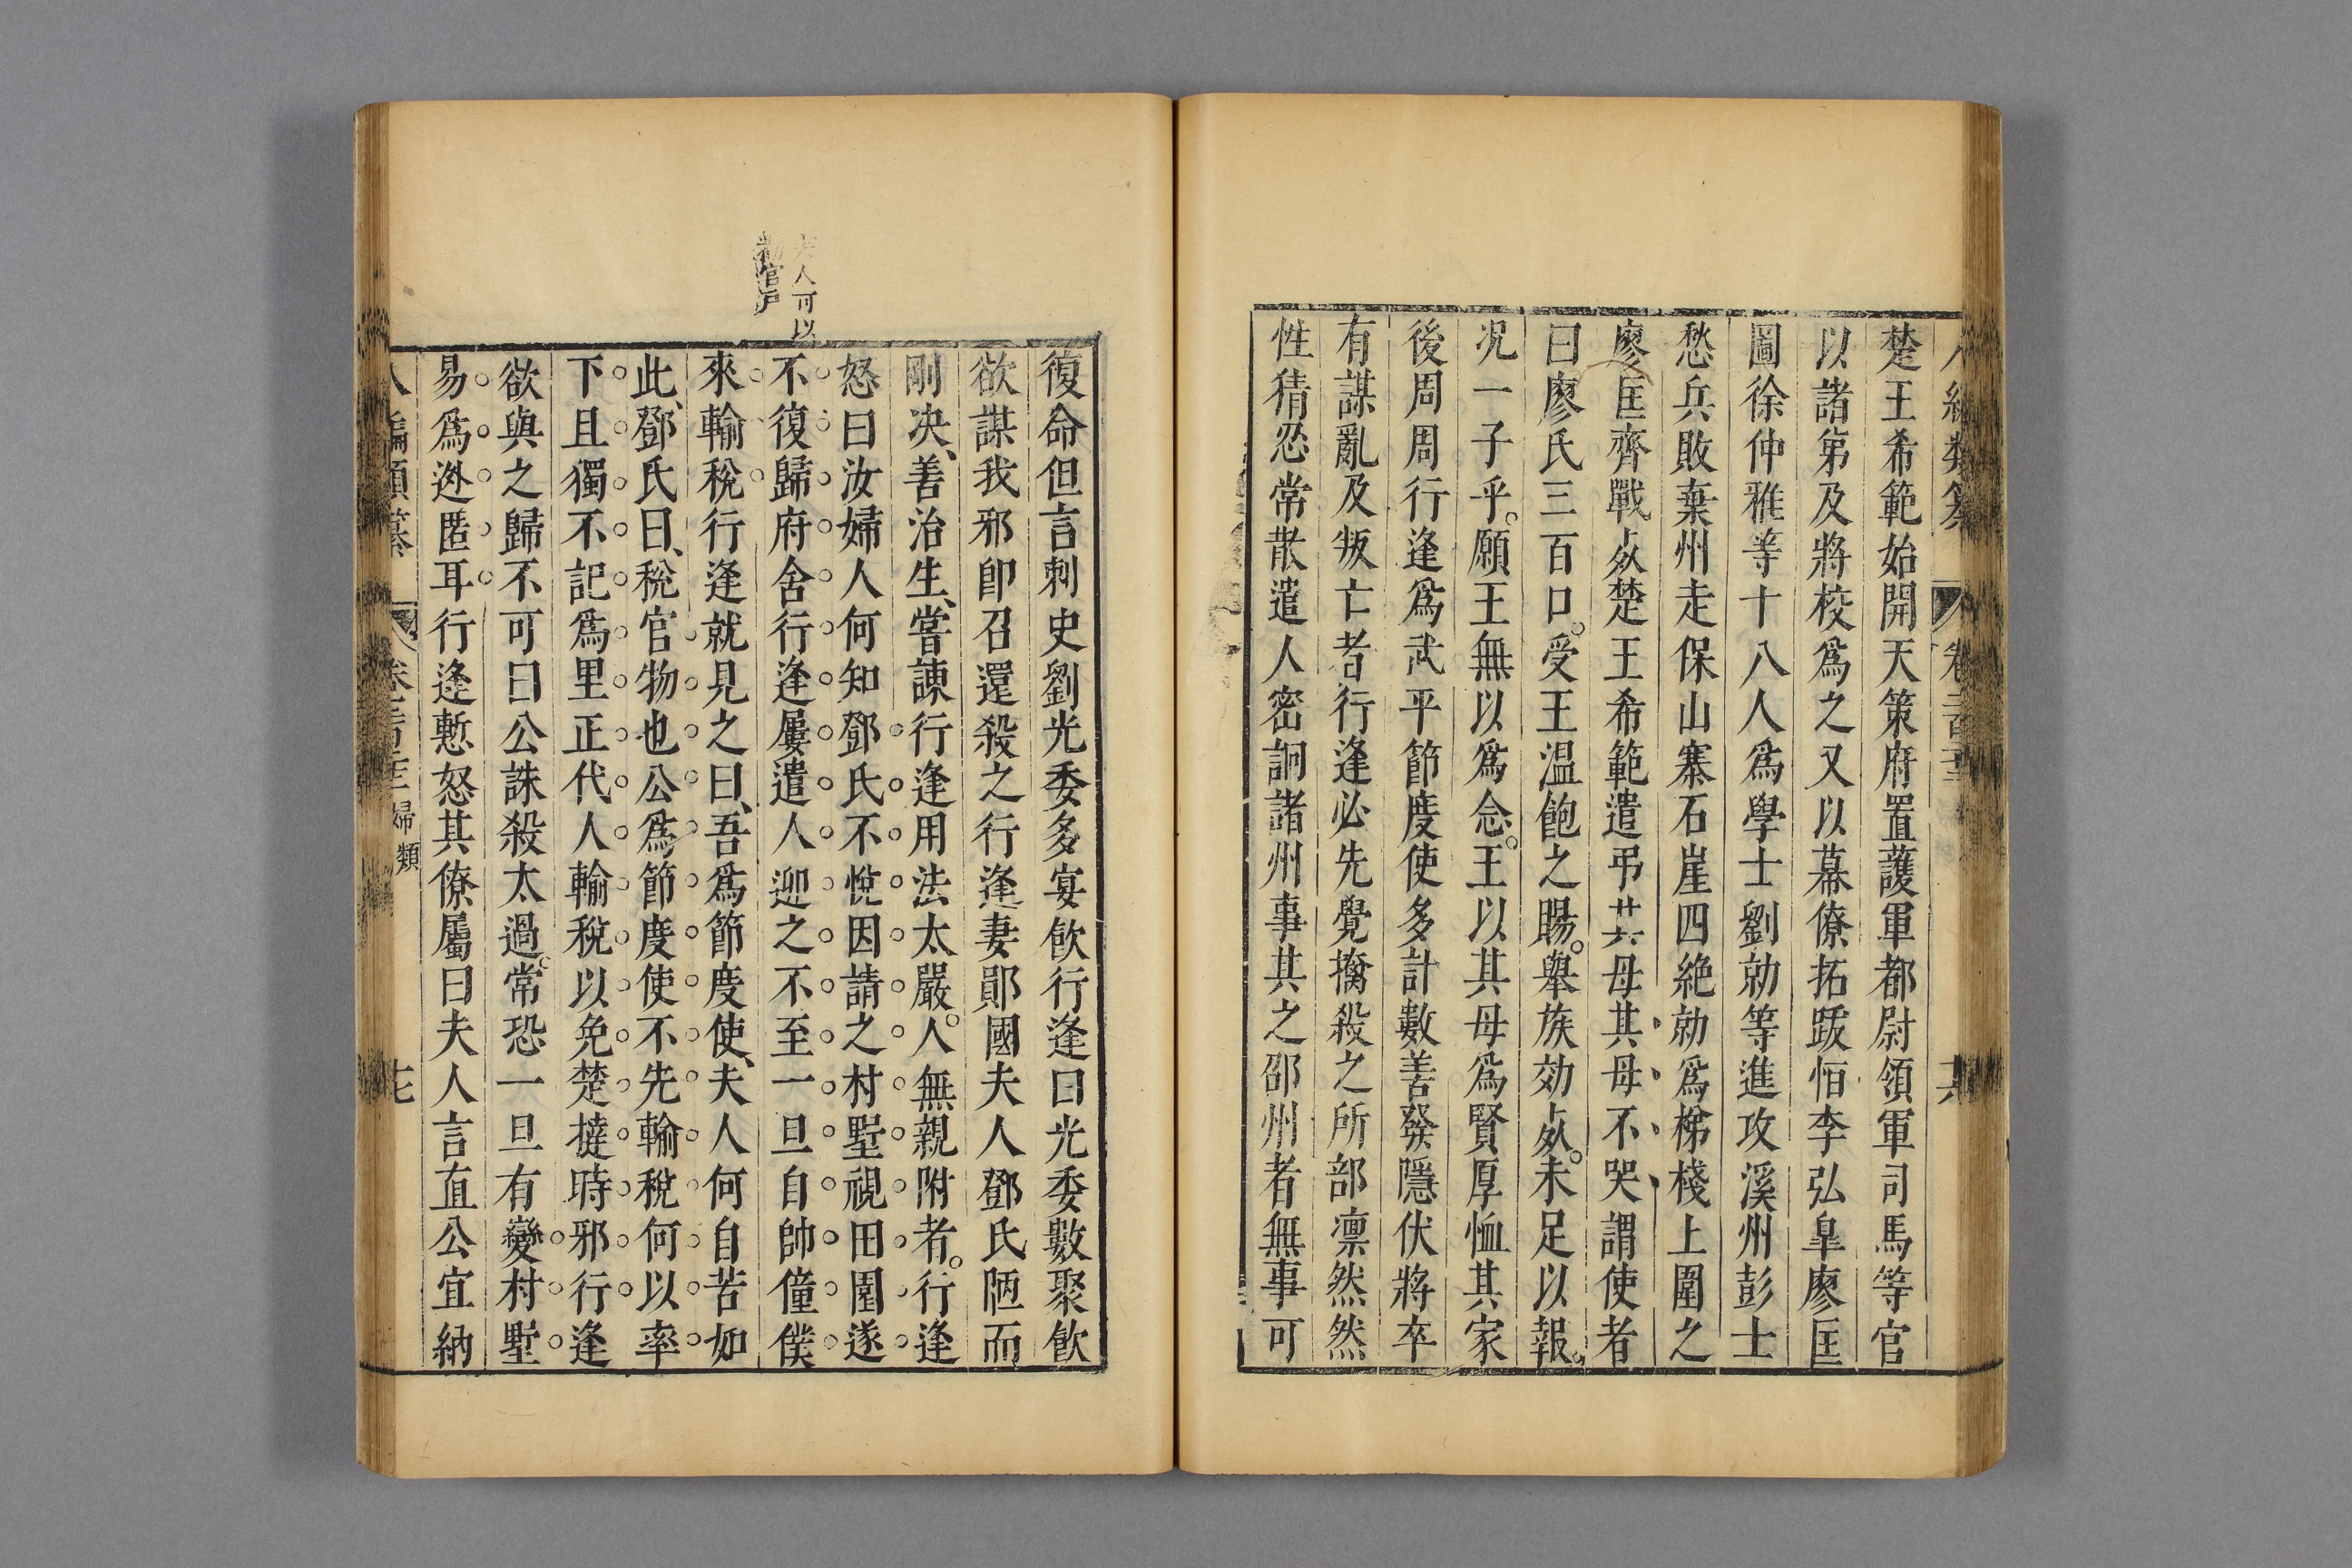 楚王希範始開天策府置護軍都尉領軍司馬等官
以諸弟及將校爲之又以幕僚拓䟦恒李弘臯廖匡
圖徐仲雅等十八人爲學士劉勍等進攻溪州彭士
愁兵敗棄州走保山寨石崖四絶勍爲梯棧上圍之
廖匡齊戰死楚王希範遣弔其母其母不哭謂使者
曰廖氏三百口。受王温飽之賜。舉族効死。未足以報。
况一子乎。願王無以爲念。王以其母爲賢厚恤其家
後周周行逢爲武平節度使多計數善發隱伏將卒
有謀亂及叛亡者行逢必先覺擒殺之所部凛然然
性猜忍常散遣人密詗諸州事其之邵州者無事可
復命但言刺史劉光委多宴飲行逢曰光委數聚飲
欲謀我邪卽召還殺之行逢妻鄖國夫人鄧氏陋而
剛决、善治生、嘗諫行逢用法太嚴。人無親附者。行逢
怒曰汝婦人何知鄧氏不悅因請之村墅視田園遂
不復歸府舍行逢屢遣人迎之不至一旦自帥僮僕
來輸稅行逢就見之曰、吾爲節度使、夫人何自苦如
此、鄧氏曰、稅官物也公爲節度使不先輸稅何以率
下且獨不記爲里正代人輸稅以免楚撻時邪行逢
欲與之歸不可曰公誅殺太過。常恐一旦有變村墅
易爲逊匿耳行逢慙怒其僚屬曰夫人言直公宜納
夫人可以
官戶
八編類纂
婦類